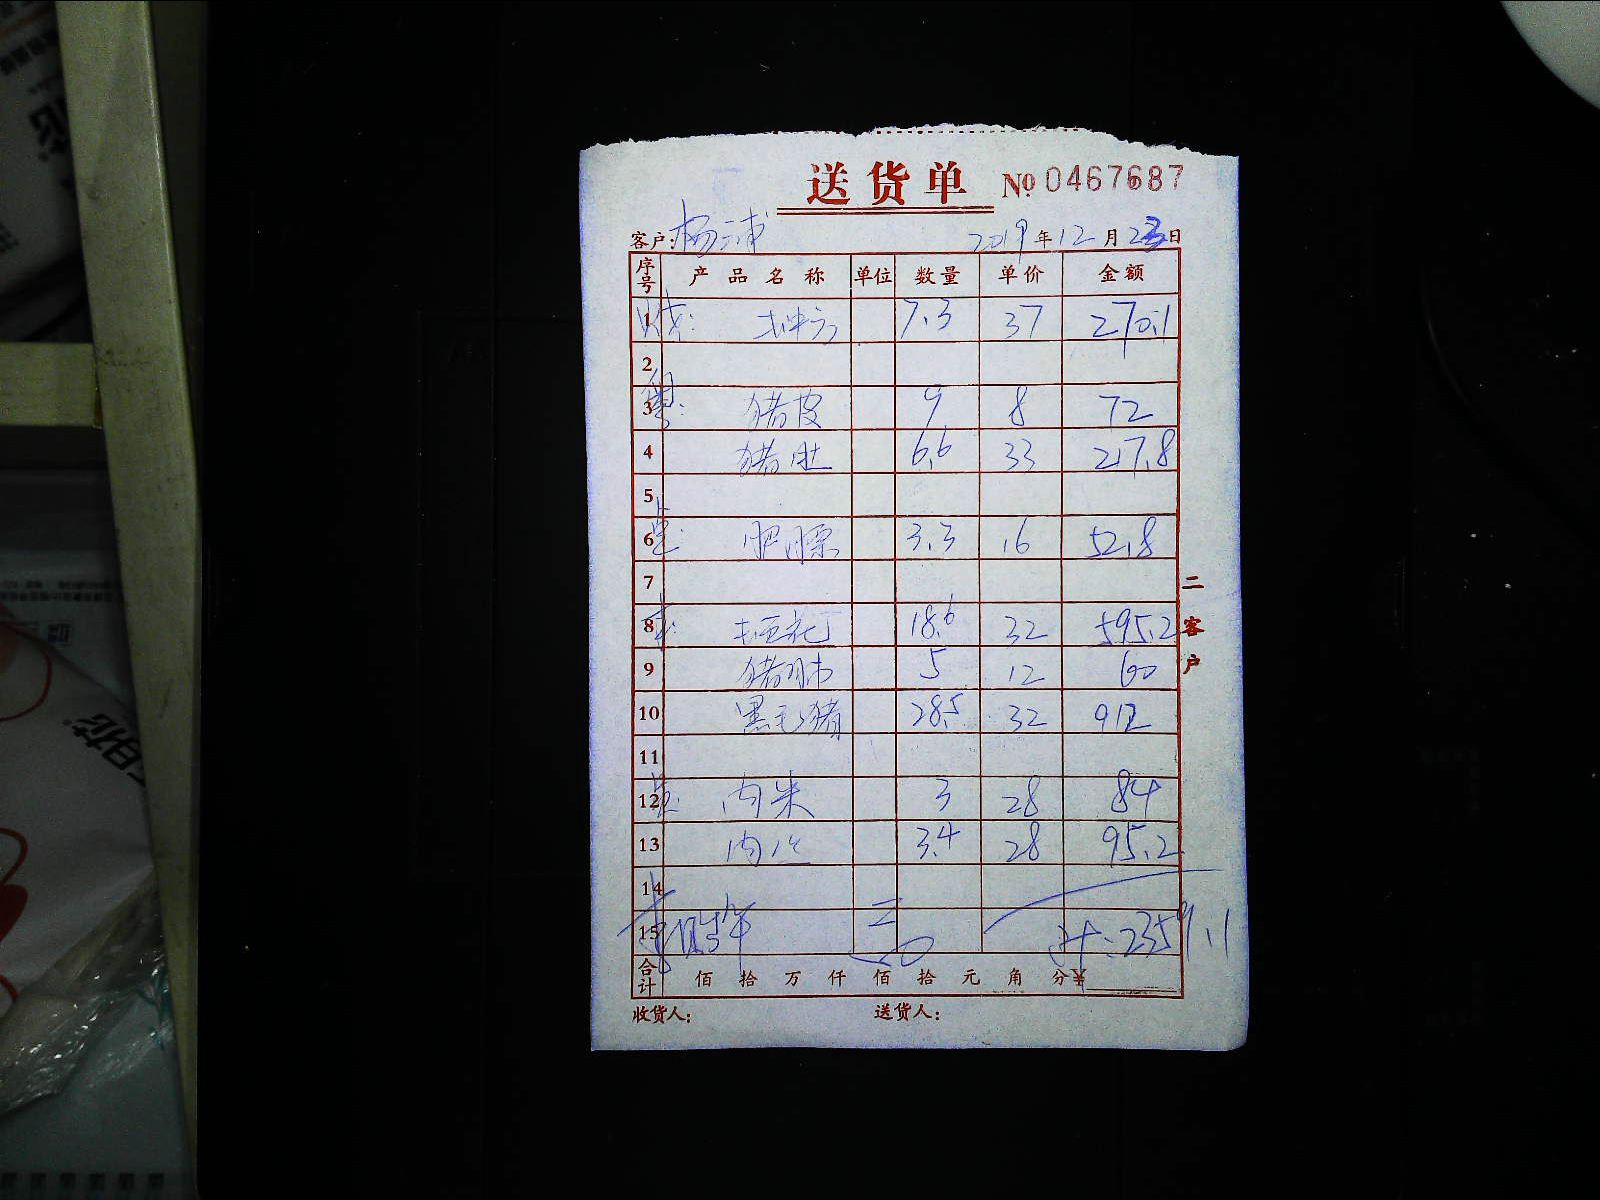 送货单 № 0467687
客户: 杨浦 2019年12月23日
序号 产品名称 单位 数量 单价 金额
1 烧: 7.3 37 270.1
2
3 粤: 猪皮 9 8 72
4 猪肚 6.6 33 217.8
5
6 点: 肥膘 3.3 16 52.8
7
8 本: 18.6 32 595.2
9 猪肺 5 12 60
10 黑毛猪 28.5 32 912
11
12 点: 肉米 3 28 84
13 肉丝 3.4 28 95.2
14
15 计: 2359.1
合计 佰 拾 万 仟 佰 拾 元 角 分¥
收货人: 送货人:
二客户